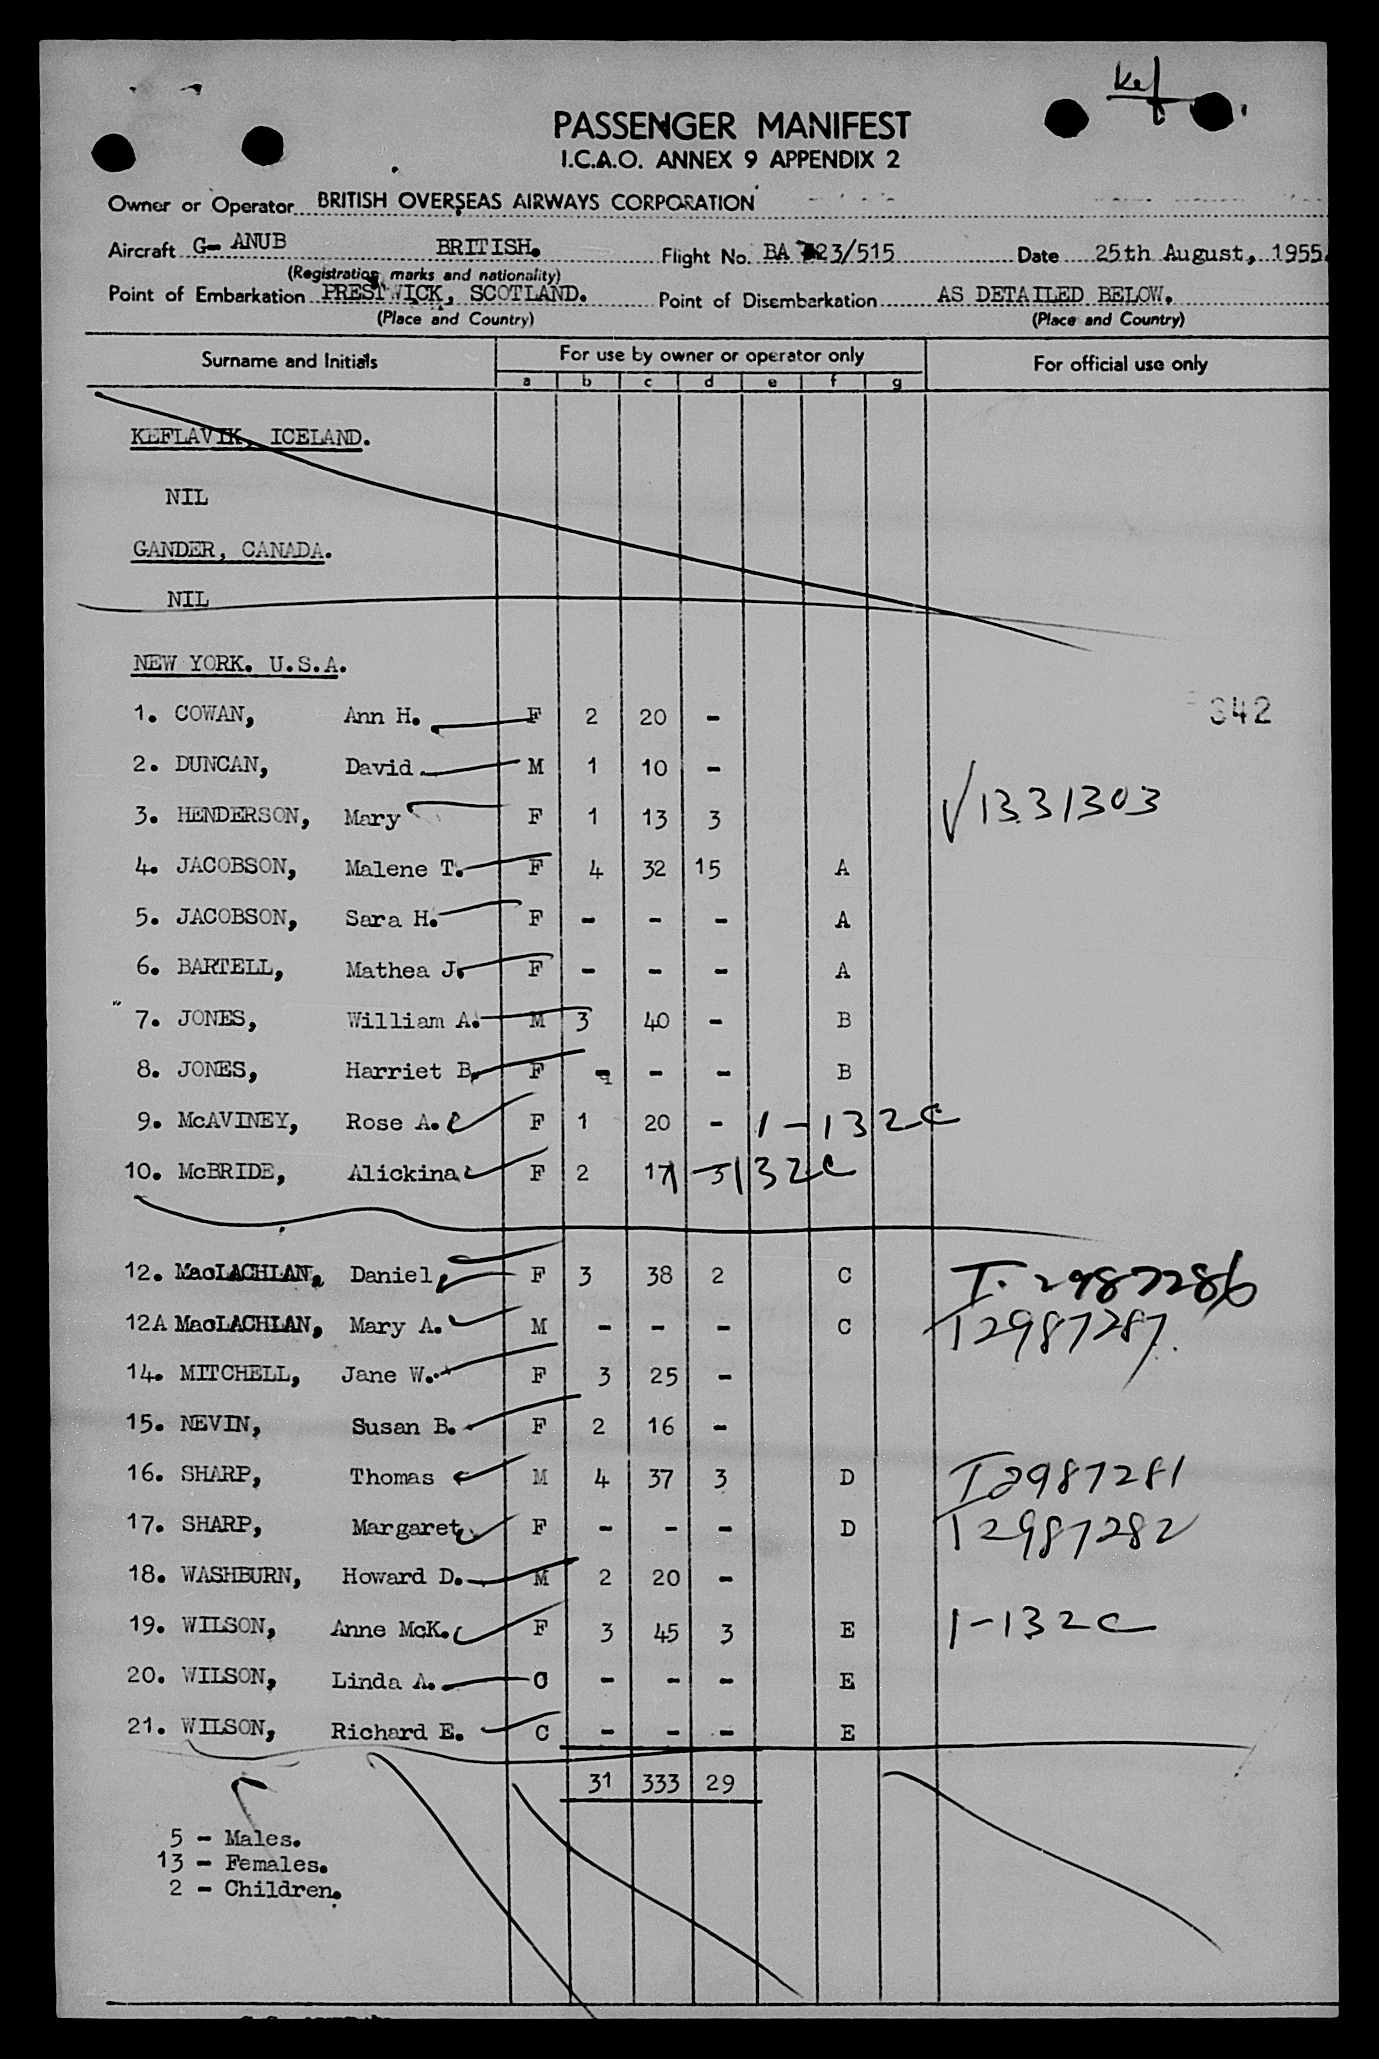 Kef
PASSENGER MANIFEST
I.C.A.O. ANNEX 9 APPENDIX 2
Owner or Operator BRITISH OVERSEAS AIRWAYS CORPORATION
Aircraft G- ANUB BRITISH. Flight No. BA 23/515 Date 25th August, 1955.
(Registration marks and nationality)
Point of Embarkation PRESTWICK, SCOTLAND. Point of Disembarkation AS DETAILED BELOW.
(Place and Country) (Place and Country)
Surname and Initials For use by owner or operator only For official use only
a b c d e f g
KEFLAVIK, ICELAND.
NIL
GANDER, CANADA.
NIL
NEW YORK. U.S.A.
1. COWAN, Ann H. F 2 20 - 342
2. DUNCAN, David M 1 10 -
3. HENDERSON, Mary F 1 13 3 √1331303
4. JACOBSON, Malene T. F 4 32 15 A
5. JACOBSON, Sara H. F - - - A
6. BARTELL, Mathea J. F - - - A
7. JONES, William A. M 3 40 - B
8. JONES, Harriet B. F - - - B
9. McAVINEY, Rose A. F 1 20 - 1-132C
10. McBRIDE, Alickina F 2 17 - 132C
12. MacLACHLAN, Daniel, F 3 38 2 C T. 2987286
12A MacLACHLAN, Mary A. M - - - C T2987287
14. MITCHELL, Jane W. F 3 25 -
15. NEVIN, Susan B. F 2 16 -
16. SHARP, Thomas M 4 37 3 D T2987281
17. SHARP, Margaret F - - - D T2987282
18. WASHBURN, Howard D. M 2 20 -
19. WILSON, Anne McK. F 3 45 3 E 1-132C
20. WILSON, Linda A. C - - - E
21. WILSON, Richard E. C - - - E
31 333 29
5 - Males.
13 - Females.
2 - Children.